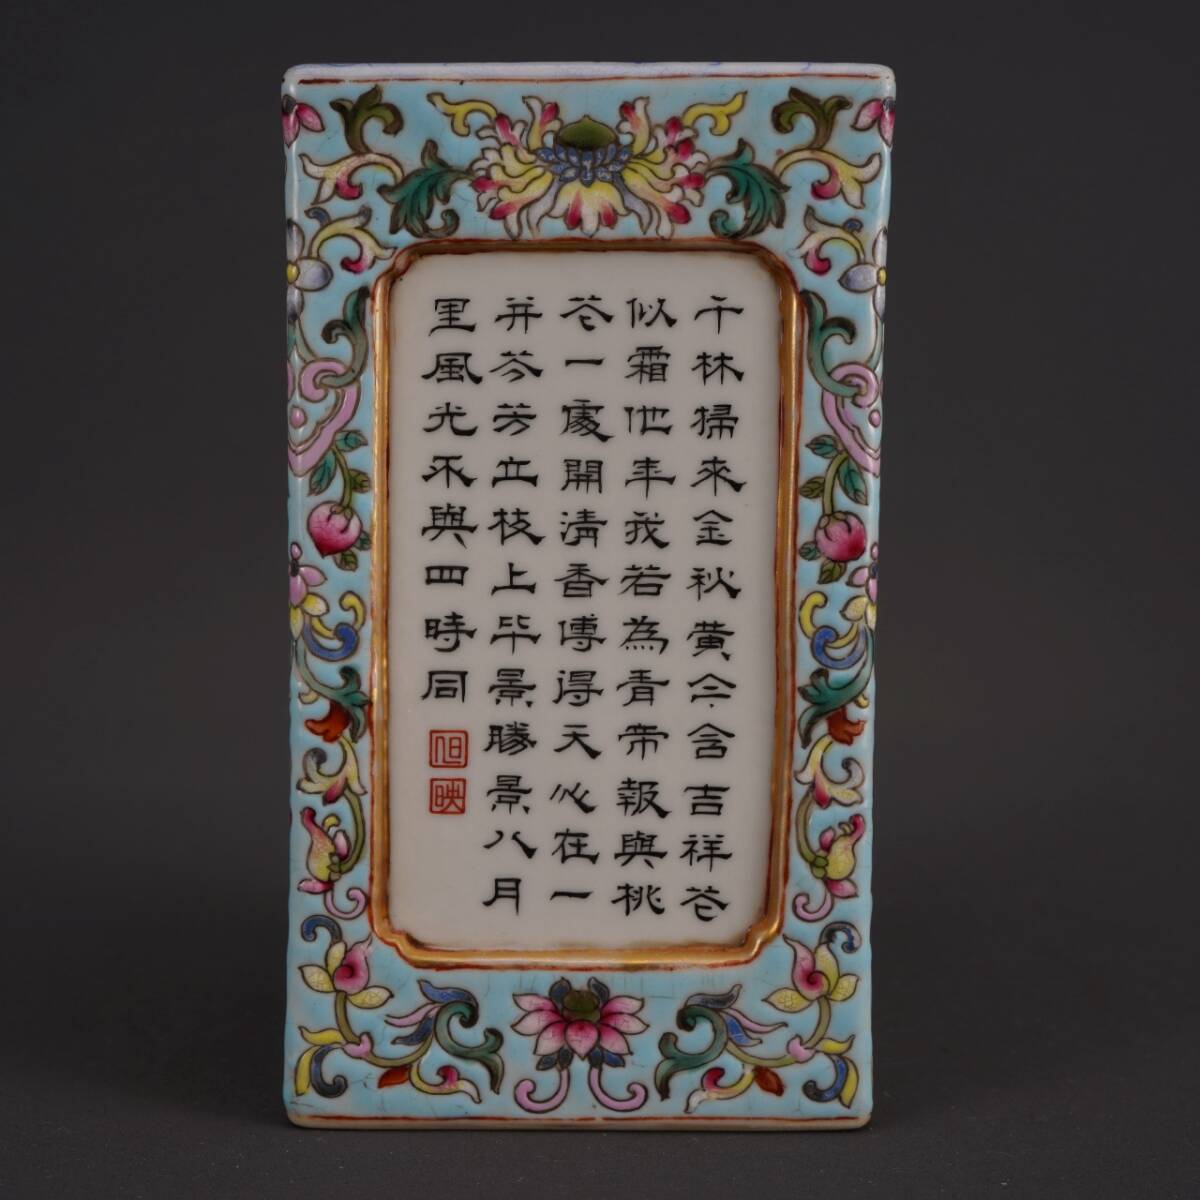 千林掃來金秋黄亽含吉祥芲
似霜他年我若為青帝報與桃
芲一處開清香傅得天心在一
并芬芳立枝上毕景勝景八月
里風光不與四時同
映